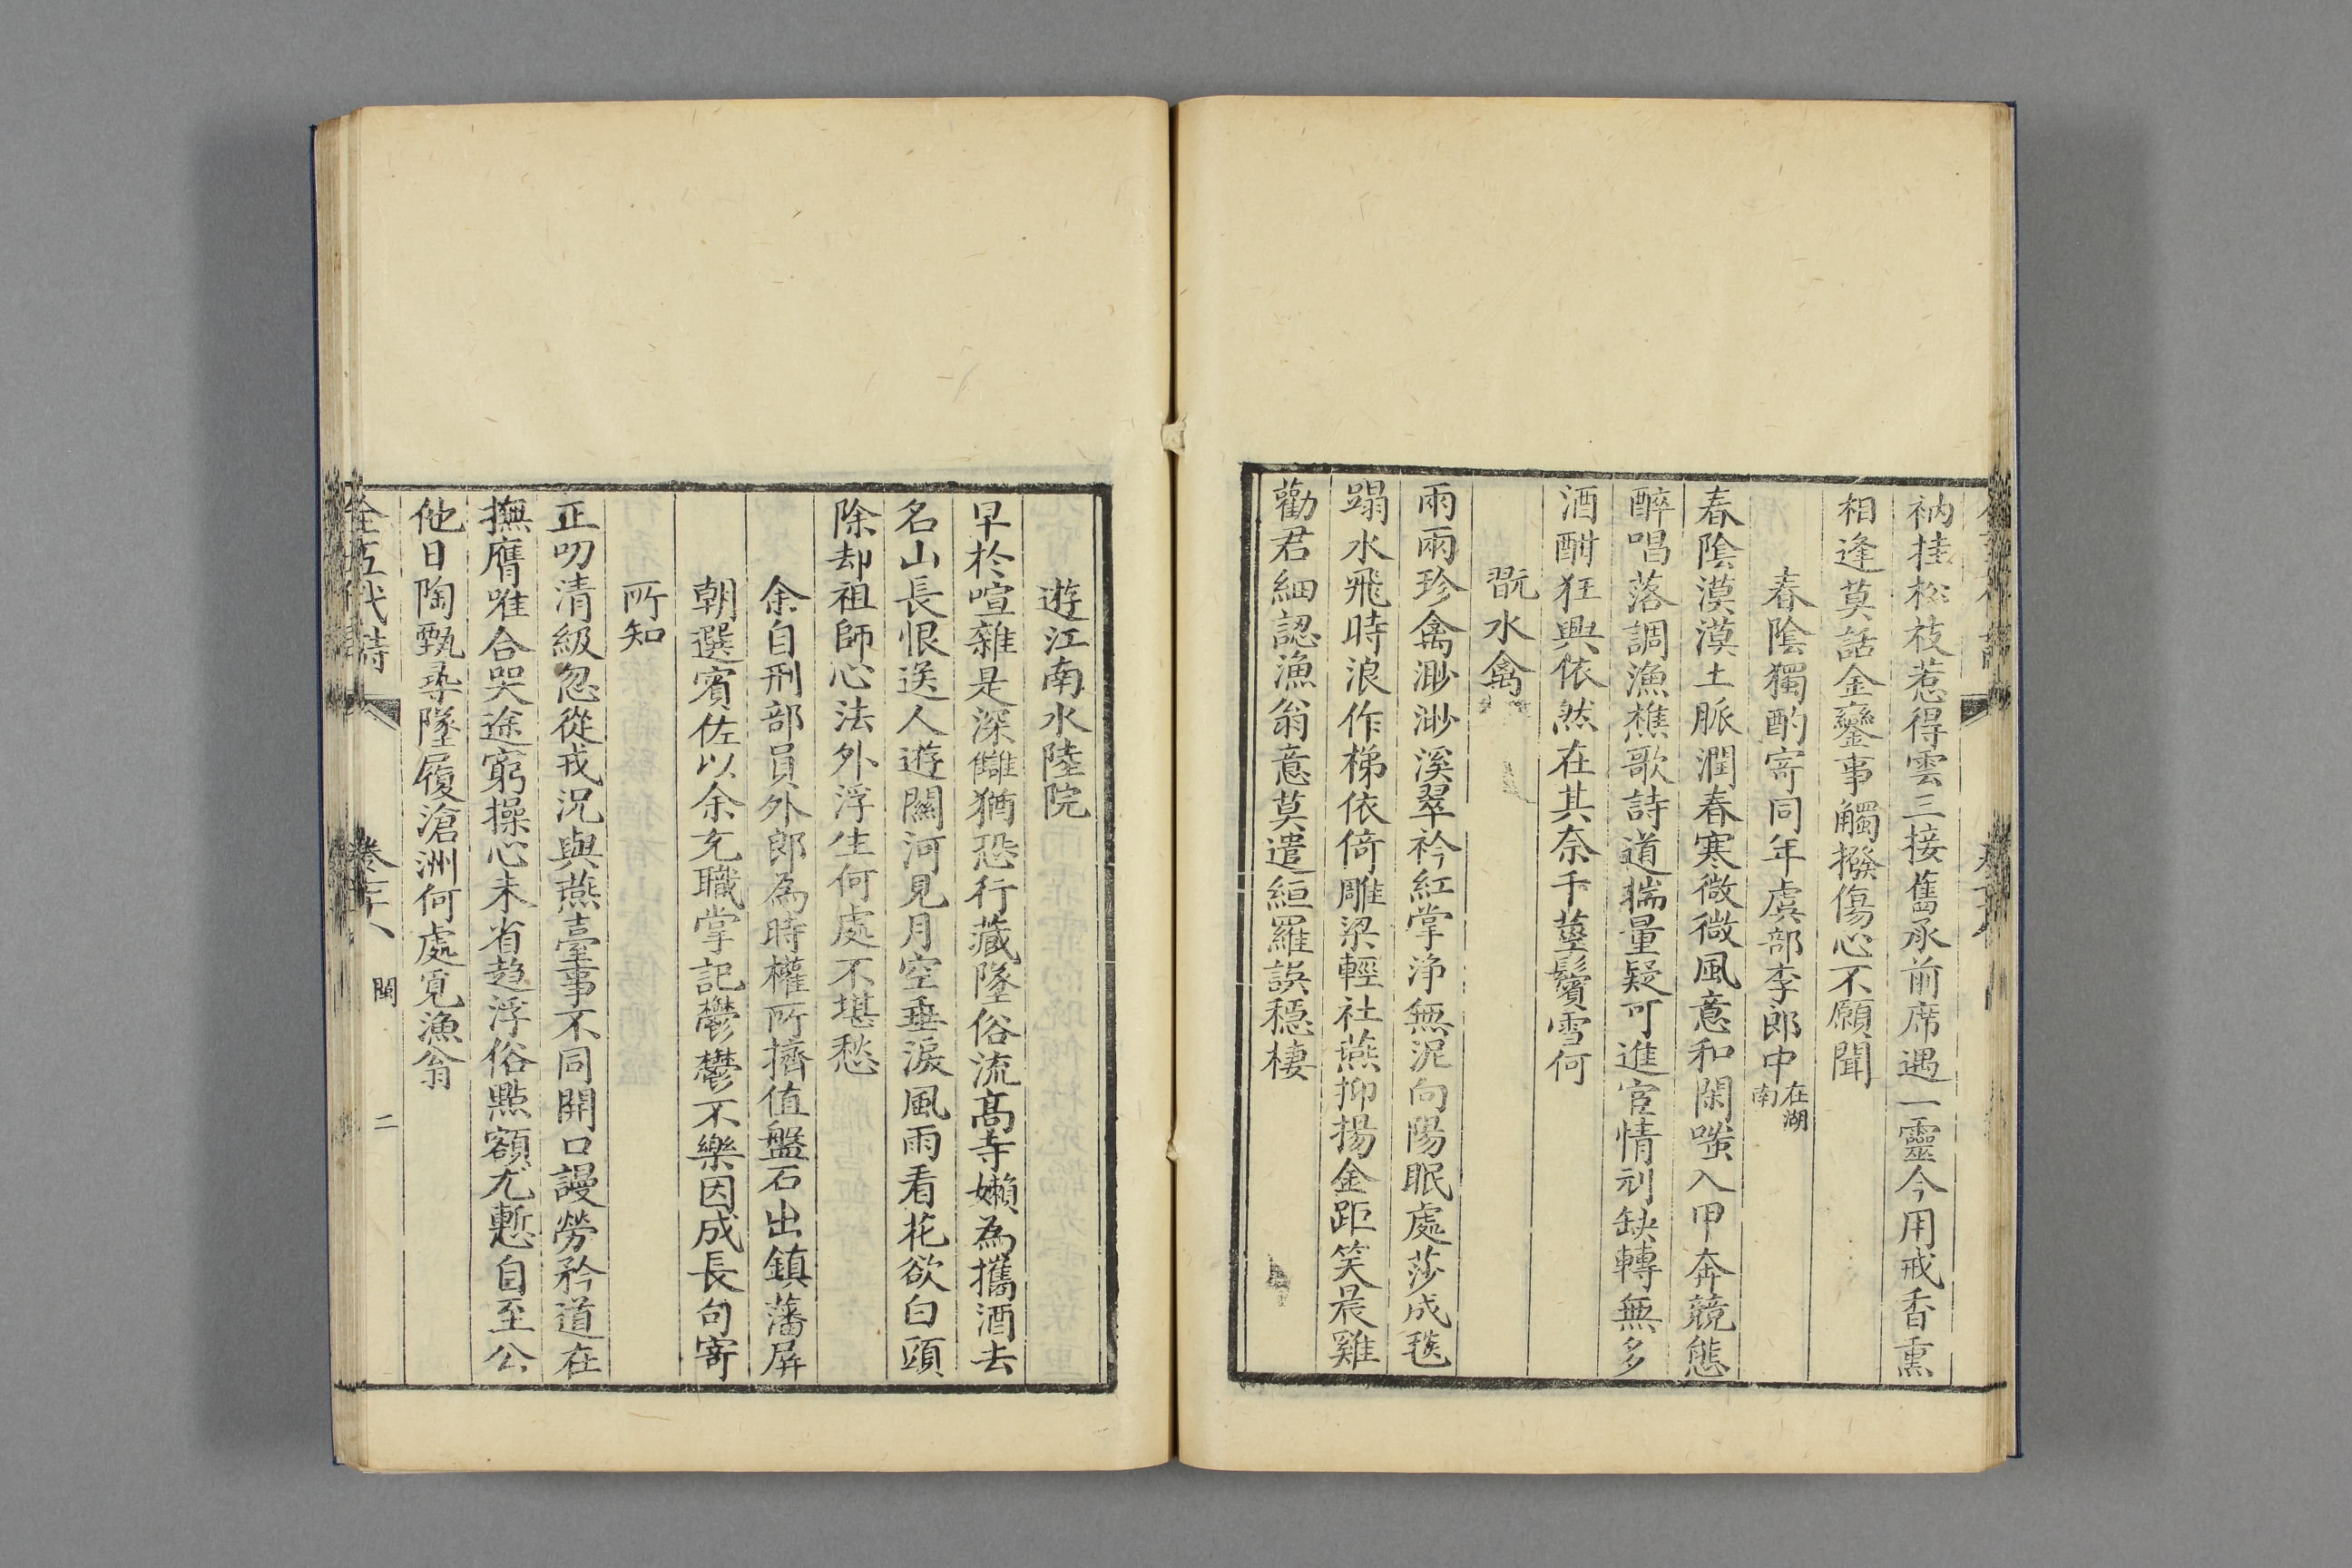 衲挂松枝惹得雲三接舊承前席遇一靈今用戒香熏
相逢莫話金鑾事觸撥傷心不願聞
春陰獨酌寄同年虞部李郎中在湖南
春陰漠漠土脈潤春寒微微風意和閑嗤入甲奔競態
醉唱落調漁樵歌詩道揣量疑可進宦情刓缺轉無多
酒酣狂興依然在其奈千莖鬢雪何
翫水禽
兩兩珍禽渺渺溪翠衿紅掌淨無泥向陽眠處莎成毯
蹋水飛時浪作梯依倚雕梁輕社燕抑揚金距笑晨雞
勸君細認漁翁意莫遣絙羅誤穩棲
遊江南水陸院
早於喧雜是深讎猶恐行藏墜俗流高寺嬾為攜酒去
名山長恨送人遊關河見月空垂淚風雨看花欲白頭
除却祖師心法外浮生何處不堪愁
余自刑部員外郎為時權所擠值盤石出鎮藩屏
朝選賓佐以余充職掌記鬱鬱不樂因成長句寄
所知
正叨清級忽從戎況與燕臺事不同開口謾勞矜道在
撫膺唯合哭途窮操心未省趨浮俗點額尤慙自至公
他日陶甄尋墜履滄洲何處覓漁翁
全五代詩 卷 閩 二